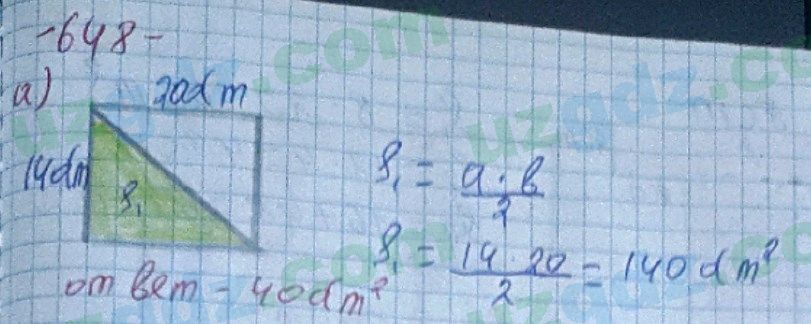 -648-
а) 20dm
14dm
S₁
S₁ = a·b / 2
S₁ = 14·20 / 2 = 140 dm²
ответ - 40dm²
uzgdz.com